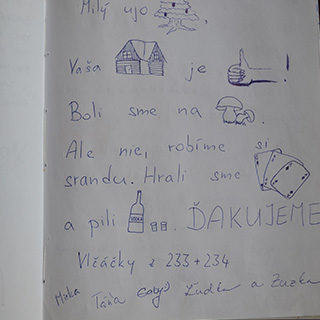 Milý ujo ,
Vaša je !
Boli sme na .
Ale nie, robíme si
srandu. Hrali sme
a pili VODKA . ĎAKUJEME
Vlčáčky z 233+234
Miška Táňa Gaby Ľudka a Zuzka